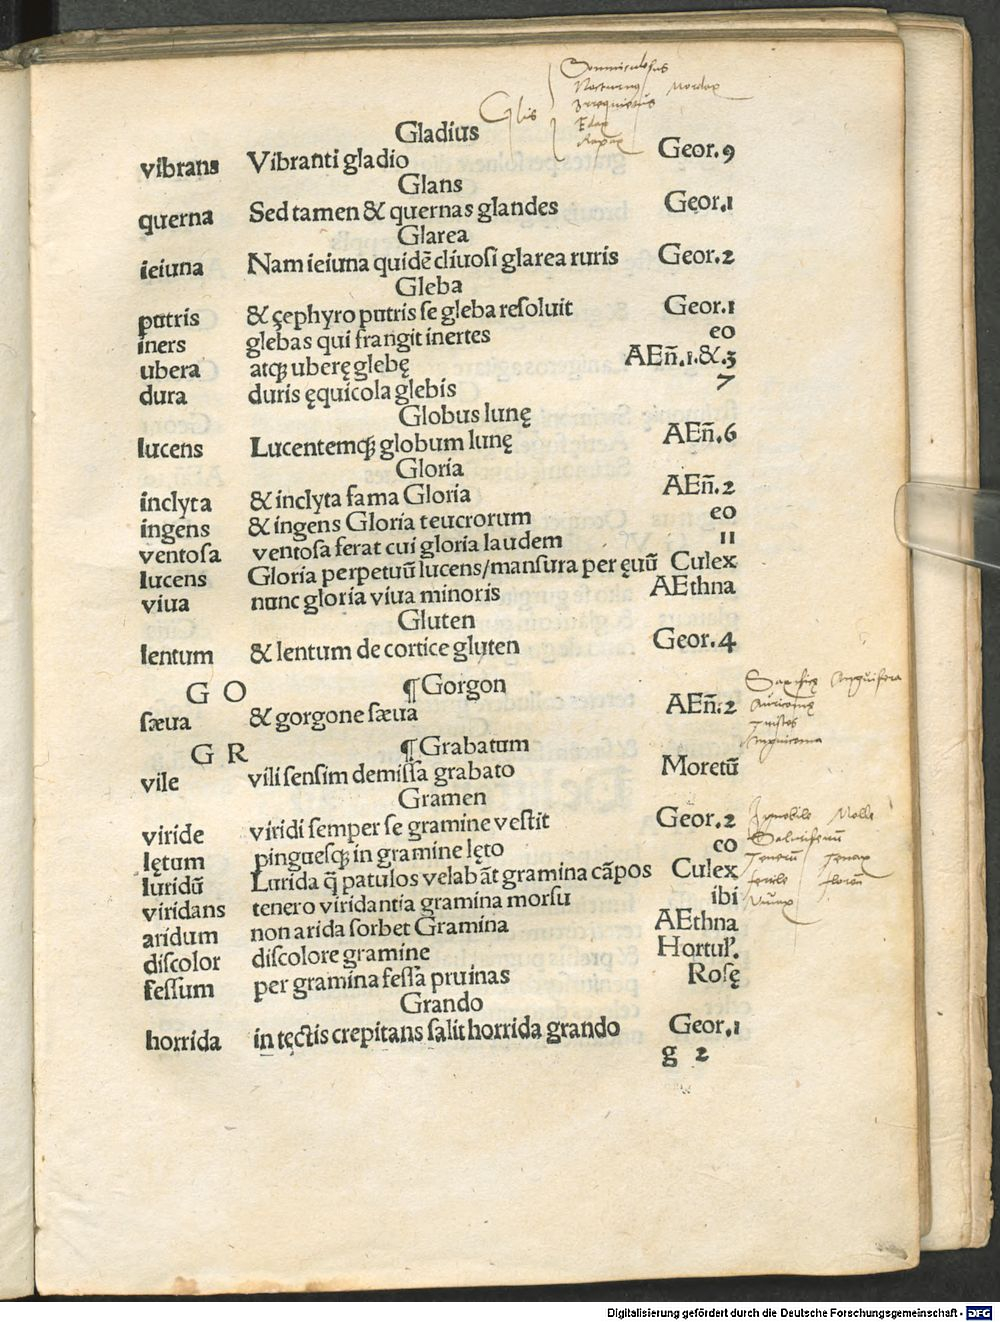 Glis
Somniculosus
Nocturnus Mordax
Irrequietus
Edax
Rapax
Gladius
vibrans Vibranti gladio Geor.9
Glans
querna Sed tamen & quernas glandes Geor.1
Glarea
ieiuna Nam ieiuna quidē cliuosi glarea ruris Geor.2
Gleba
putris & çephyro putris se gleba resoluit Geor.1
iners glebas qui frangit inertes eo
ubera atq; uberę glebę AEn̄.1.&.3
dura duris ęquicola glebis 7
Globus lunę
lucens Lucentemq; globum lunę AEn̄.6
Gloria
inclyta & inclyta fama Gloria AEn̄.2
ingens & ingens Gloria teucrorum eo
ventosa ventosa ferat cui gloria laudem 11
lucens Gloria perpetuū lucens/mansura per ęuū Culex
viua nunc gloria viua minoris AEthna
Gluten
lentum & lentum de cortice gluten Geor.4
G O ¶ Gorgon
sæua & gorgone sæua AEn̄.2
Saxifica Anguifera
Auricoma
Tristes
Anguicoma
G R ¶ Grabatum
vile vili sensim demissa grabato Moretū
Gramen
viride viridi semper se gramine vestit Geor.2
lętum pinguesq; in gramine lęto eo
luridū Lurida q̄ patulos velabāt gramina cāpos Culex
viridans tenero viridantia gramina morsu ibi
aridum non arida sorbet Gramina AEthna
discolor discolore gramine Hortul'.
fessum per gramina fessa pruinas Rosę
Ignobile Molle
Salutiferū
Tenerū Tenax
sterile floreū
Viuax
Grando
horrida in tęctis crepitans salit horrida grando Geor.1
g 2
Digitalisierung gefördert durch die Deutsche Forschungsgemeinschaft - DFG